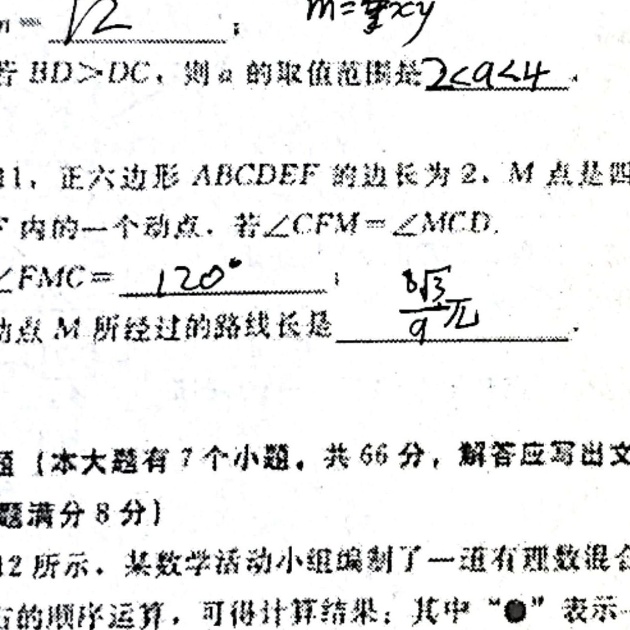 = √2 ; m=
若 BD>DC，则 a 的取值范围是 2<a<4 .
11. 正六边形 ABCDEF 的边长为 2. M 点是四
F 内的一个动点. 若∠CFM=∠MCD.
∠FMC= 120° ;
动点 M 所经过的路线长是 8√3/9 π .
题（本大题有 7 个小题，共 66 分，解答应写出文
题满分 8 分）
12 所示. 某数学活动小组编制了一道有理数混合
右的顺序运算，可得计算结果；其中“●”表示